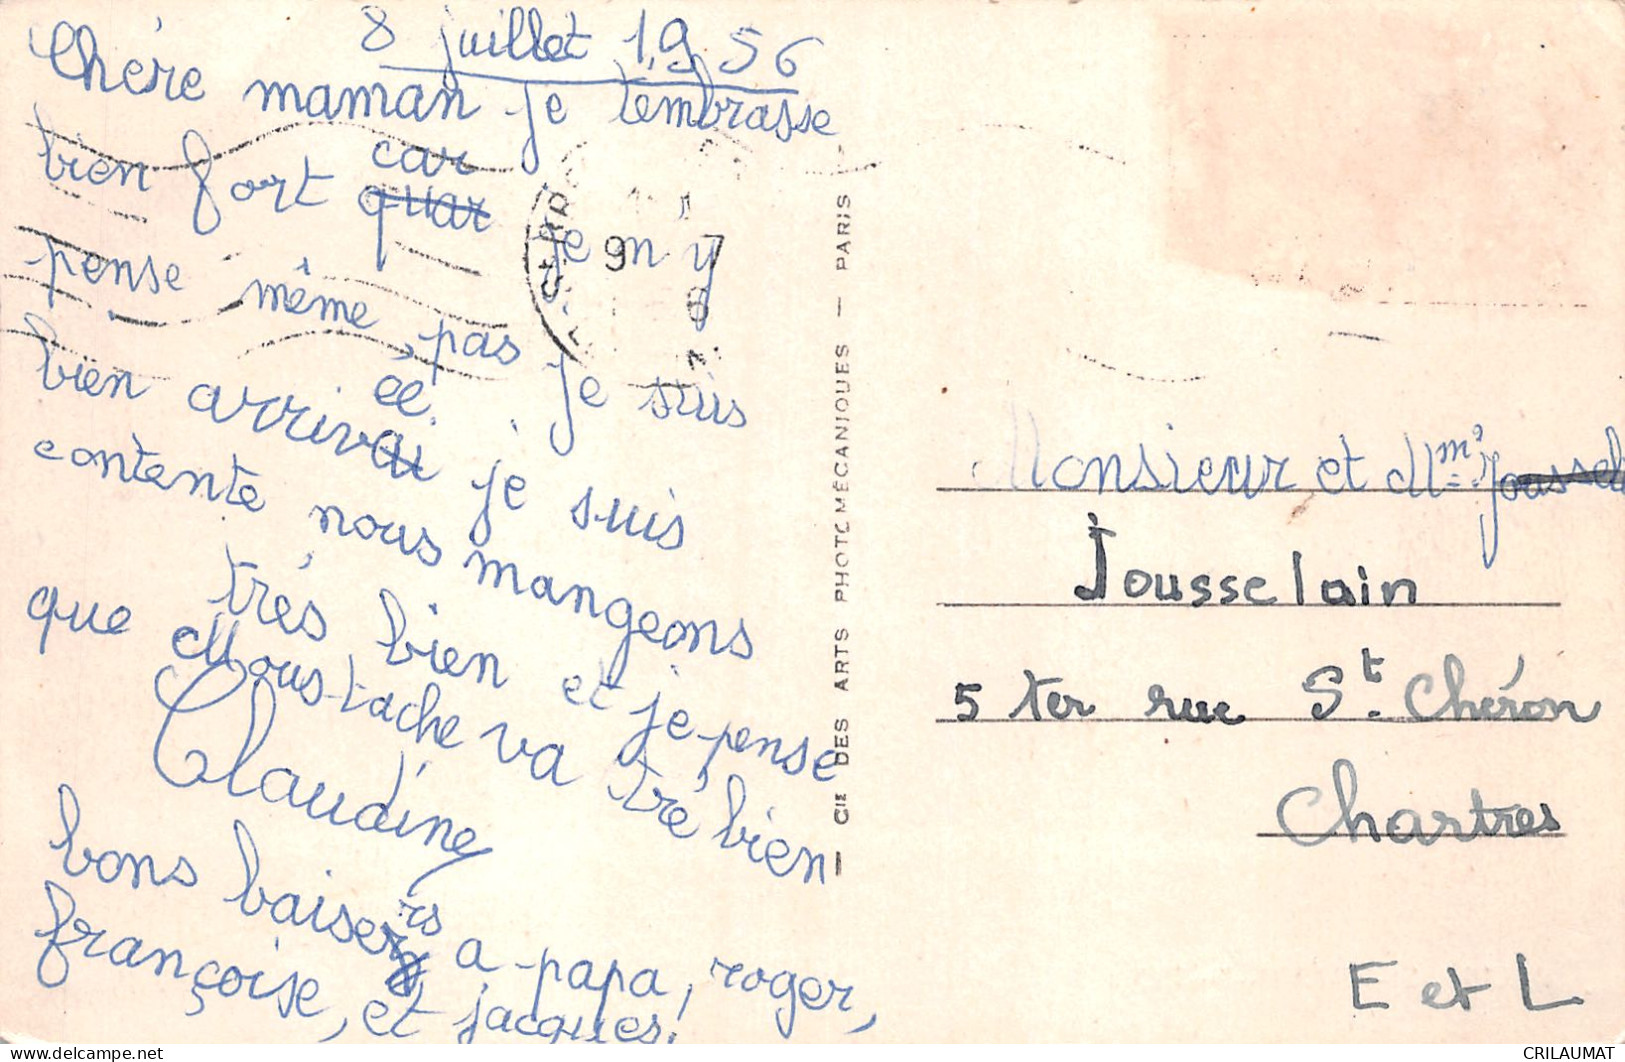 8 juillet 1956
Chére maman je tembrasse
bien fort quar car je n y
pense même pas je suis
bien arrivai ée je suis
contente nous mangeons
très bien et je pense
que Moustache va tré bien
Claudine
bons baisers a papa, roger,
françoise, et jacques.
CIE DES ARTS PHOTOMÉCANIQUES — PARIS
9 7
Monsieur et Mme
Jousselain
5 ter rue St. Chéron
Chartres
E et L
delcampe.net
CRILAUMAT